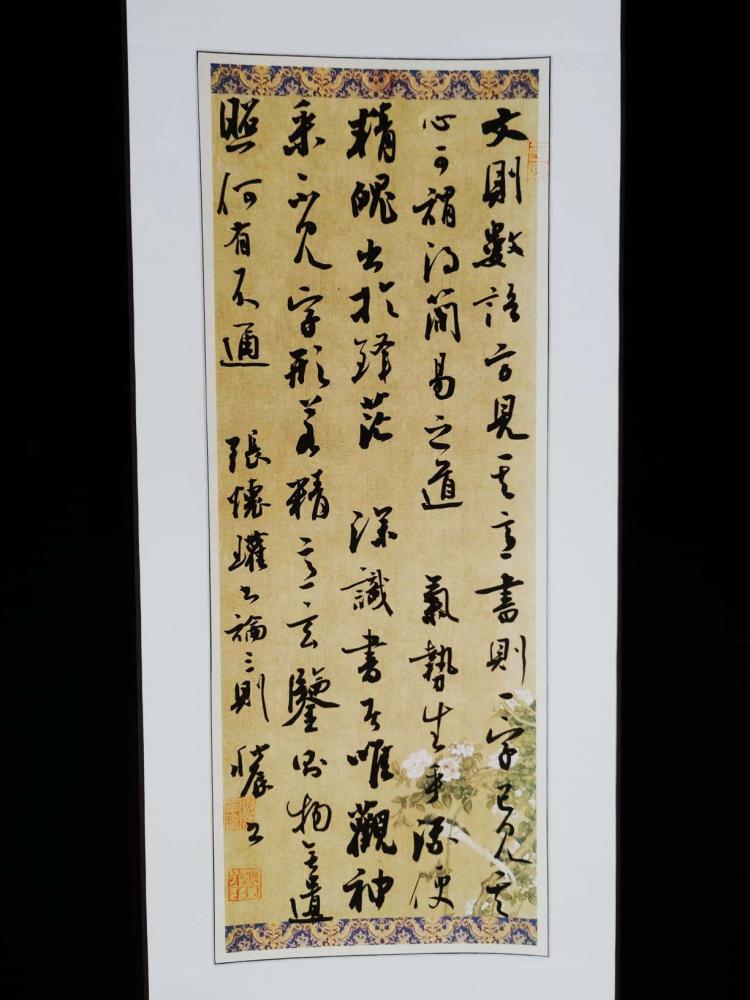 文則數語方見其意書則一字已見其
心可謂得簡易之道 氣勢生乎流便
精魄出於鋒芒 深識書者唯觀神
采不見字形若精意玄鑒則物無遺
照何有不通 張懷瓘書論三則 書